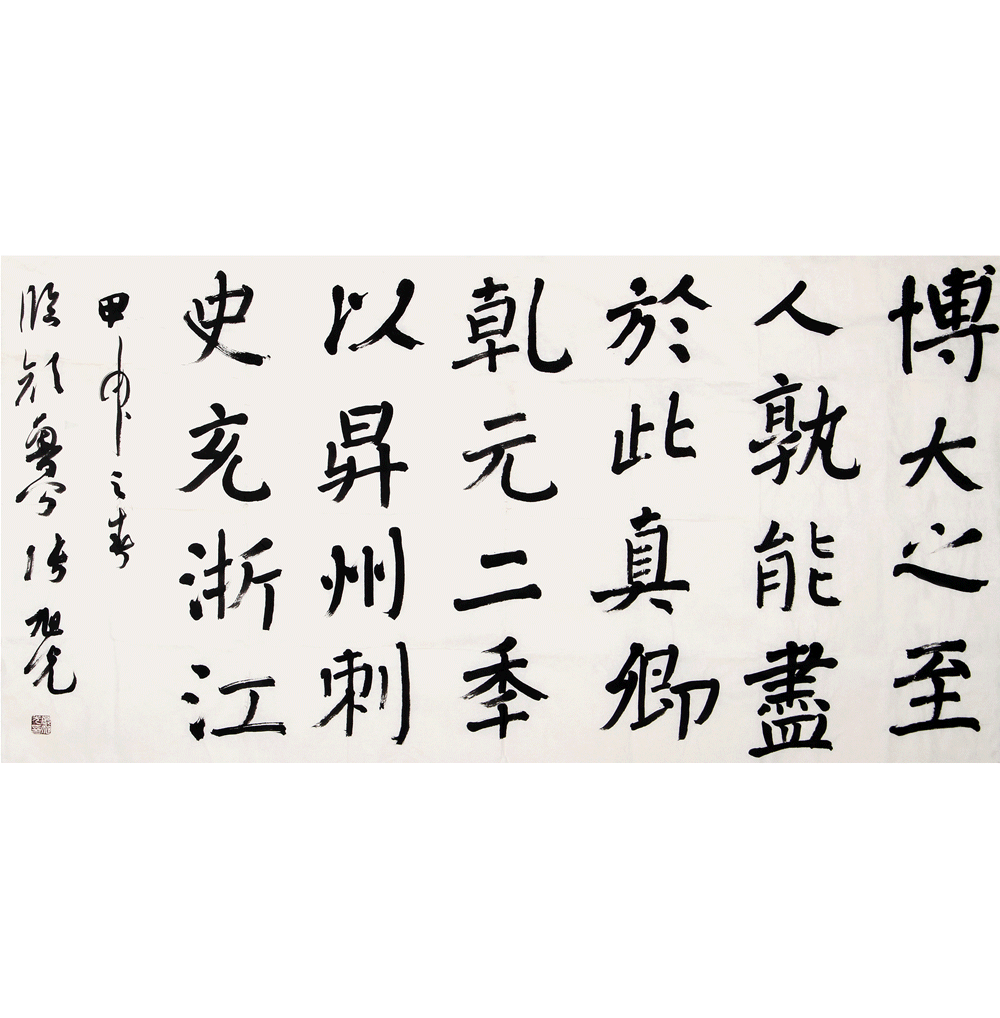 博大之至
人孰能盡
於此真卿
乹元二季
以昇州刺
史充浙江
甲申之春
臨顏魯公張旭光